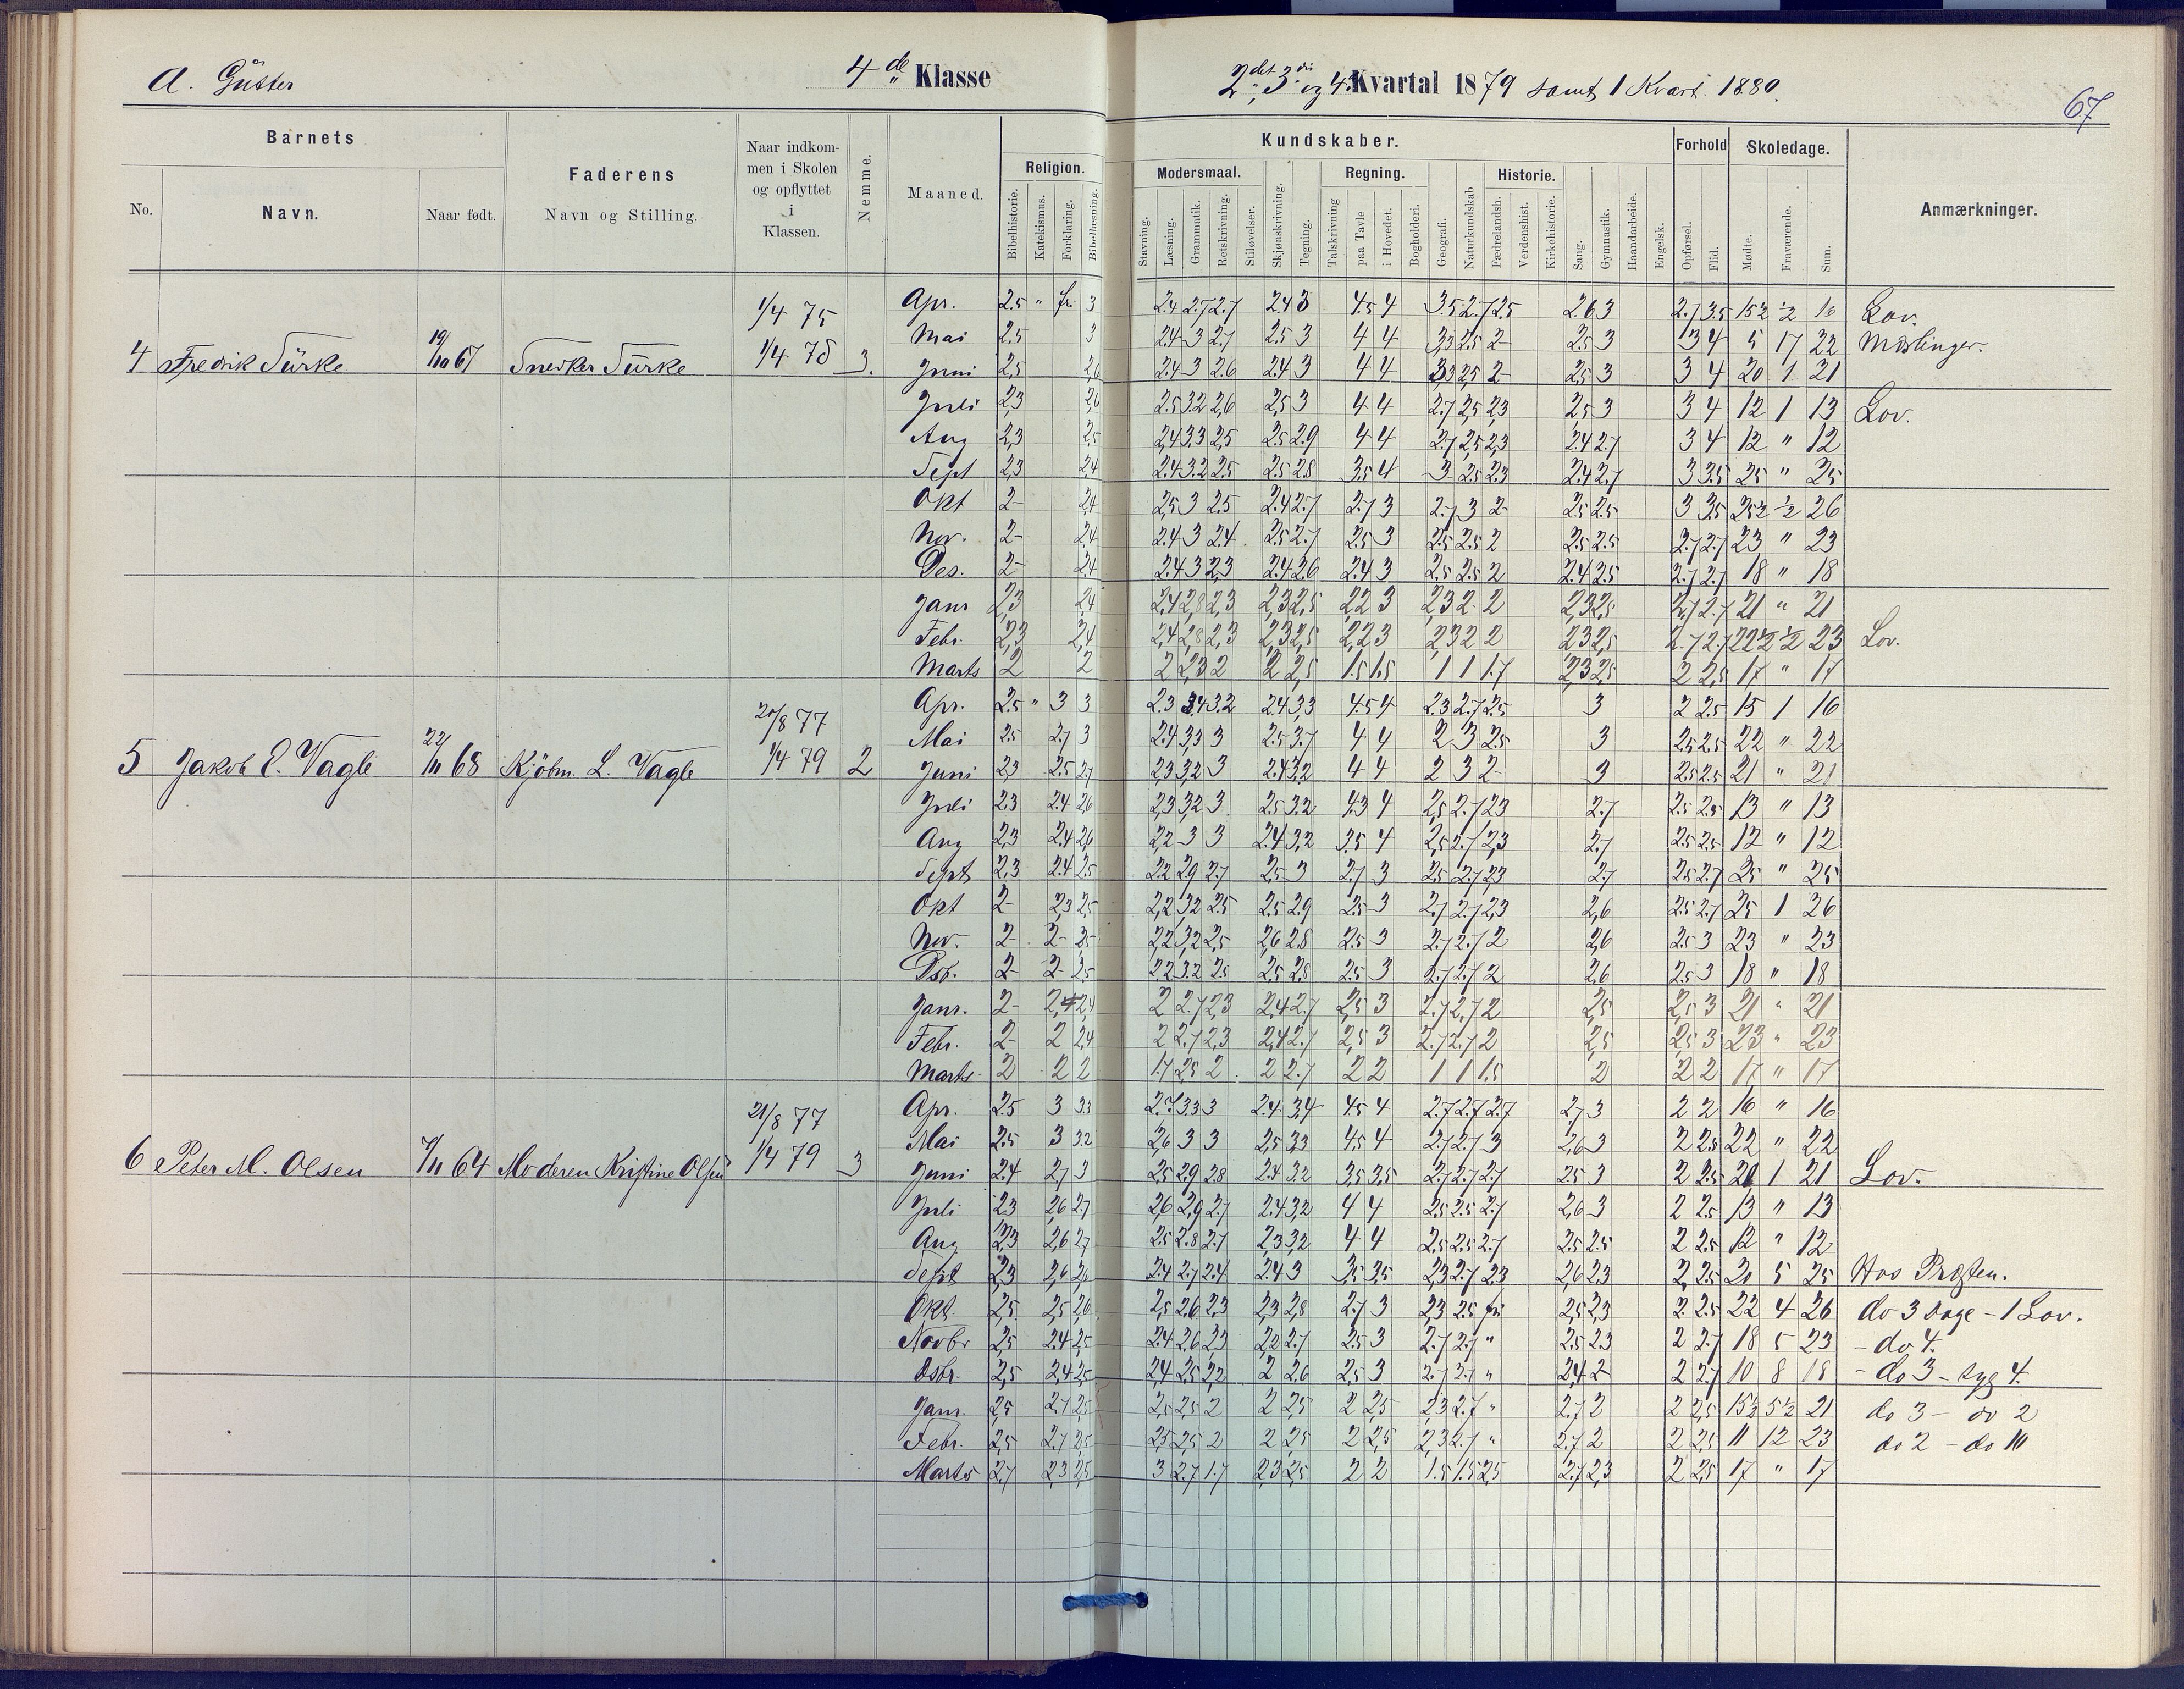 A. Güster 4de Klasse 2det, 3die og 4. Kvartal 1879 samt 1 Kvart. 1880.
67
Barnets Faderens Naar indkommen i Skolen og opflyttet i Klassen. Nemme. Maaned. Kundskaber. Forhold Skoledage. Anmærkninger.
No. Navn. Naar født. Navn og Stilling. Religion. Modersmaal. Regning. Historie.
Bibelhistorie. Katekismus. Forklaring. Bibellæsning. Stavning. Læsning. Grammatik. Retskrivning. Stiløvelser. Skjønskrivning. Tegning. Talskrivning paa Tavle i Hovedet. Bogholderi. Geografi. Naturkundskab Fædrelandsh. Verdenshist. Kirkehistorie. Sang. Gymnastik. Haandarbeide. Engelsk. Opførsel. Flid. Møtte. Fraværende. Sum.
1/4 75 Apr. 2.5 " fri 3 2.4 2.7 2.7 2.4 3 4.5 4 3.5 2.7 2.5 2.6 3 2.7 3.5 15½ ½ 16 Lov.
Mai 2.5 3 2.4 3 2.7 2.5 3 4 4 3,3 2.5 2 2.5 3 3 4 5 17 22 Mæslinger.
4 Fredrik Türke 19/10 67 Snedker Türke 1/4 78 3. Juni 2,5 2,6 2.4 3 2.6 2.4 3 4 4 3,3 2,5 2 2.5 3 3 4 20 1 21
Juli 2,3 2,6 2.5 3.2 2,6 2,5 3 4 4 2.7 2,5 2,3 2,5 3 3 4 12 1 13 Lov.
Aug 2,3 2,5 2,4 3.3 2,5 2.5 2.9 4 4 2.7 2,5 2,3 2.4 2.7 3 4 12 " 12
Sept 2,3 2.4 2.4 3.2 2.5 2.5 2.8 3.5 4 3 2.5 2.3 2.4 2.7 3 3.5 25 " 25
Okt 2 2,4 2,5 3 2.5 2.4 2.7 2.7 3 2.7 3 2 2.5 2.5 3 3.5 25½ ½ 26
Nov. 2 2.4 2.4 3 2.4 2.5 2.7 2.5 3 2.5 2.5 2 2.5 2.5 2.7 2.7 23 " 23
Des. 2 2.4 2.4 3 2,3 2.4 2.6 2.4 3 2.5 2.5 2 2.4 2.5 2.7 2.7 18 " 18
Janr 2,3 2,4 2,4 2,8 2,3 2,3 2,5 2,2 3 2,3 2 2 2,3 2,5 2,7 2.7 21 " 21
Febr. 2,3 2,4 2,4 2,8 2,3 2,3 2,5 2,2 3 2,3 2 2 2,3 2,5 2.7 2.7 22½ ½ 23 Lov.
Marts 2 2 2 2,3 2 2 2,5 1.5 1.5 1 1 1.7 2,3 2,5 2 2,5 17 " 17
20/8 77 Apr. 2.5 " 3 3 2.3 3.4 3.2 2.4 3,3 4.5 4 2.3 2.7 2.5 3 2 2.5 15 1 16
Mai 2.5 2.7 3 2.4 3,3 3 2.5 3.7 4 4 2 3 2.5 3 2.5 2.5 22 " 22
5 Jakob E. Vagle 22/11 68 Kjöbm. L. Vagle 1/4 79 2 Juni 2,3 2.5 2.7 2,3 3,2 3 2.4 3,2 4 4 2 3 2 3 2.5 2.5 21 " 21
Juli 2.3 2.4 2.6 2,3 3,2 3 2.5 3.2 4.3 4 2,5 2.7 2,3 2.7 2.5 2.5 13 " 13
Aug 2,3 2.4 2,6 2,2 3 3 2.4 3,2 3.5 4 2,5 2.7 2,3 2.7 2.5 2.5 12 " 12
Sept 2,3 2.4 2.5 2.2 2.9 2.7 2.5 3 2.7 3 2.5 2.7 2.3 2.7 2.5 2.7 25 " 25
Okt 2 2,3 2,5 2,2 3,2 2.5 2.5 2.9 2.5 3 2.7 2.7 2,3 2,6 2.5 2.7 25 1 26
Nov. 2 2 2,5 2,2 3,2 2,5 2,6 2.8 2.5 3 2.7 2.7 2 2,6 2.5 3 23 " 23
Dsb. 2 2 2,5 2.2 3.2 2.5 2,5 2,8 2.5 3 2.7 2.7 2 2,6 2.5 3 18 " 18
Janr. 2 2,4 2,4 2 2.7 2,3 2,4 2.7 2,5 3 2.7 2,7 2 2,5 2,5 3 21 " 21
Febr. 2 2 2,4 2 2.7 2,3 2,4 2.7 2,5 3 2.7 2.7 2 2,5 2,5 3 23 " 23
Marts 2 2 2 1.7 2,5 2 2 2.7 2 2 1 1 1.5 2 2 2 17 " 17
21/8 77 Apr. 2.5 3 3.3 2.7 3.3 3 2.4 3.4 4.5 4 2.7 2.7 2.7 2.7 3 2 2 16 " 16
Mai 2.5 3 3.2 2,6 3 3 2.5 3.3 4.5 4 2.7 2.7 3 2,6 3 2 2.5 22 " 22
6 Peter M. Olsen 7/11 64 Moderen Kristine Olsen 1/4 79 3 Juni 2.4 2.7 3 2.5 2.9 2.8 2.4 3.2 3,5 3,5 2.7 2.7 2.7 2.5 3 2 2.5 20 1 21 Lov.
Juli 2.3 2,6 2.7 2,6 2,9 2.7 2.4 3,2 4 4 2.5 2.5 2.7 2,6 3 2 2.5 13 " 13
Aug 2,3 2,6 2.7 2.5 2.8 2.7 2,3 3,2 4 4 2.5 2.5 2.7 2.5 2.5 2 2.5 12 " 12
Sept 2,3 2,6 2,6 2.4 2.7 2.4 2.4 3 3,5 3,5 2,3 2.7 2,3 2,6 2,3 2 2.5 20 5 25 Hos Præsten.
Okt. 2,5 2,5 2,6 2,5 2,6 2,3 2,3 2,8 2.7 3 2,3 2,5 fri 2,5 2,3 2 2.5 22 4 26 do 3 Dage - 1 Lov.
Novbr 2,5 2.4 2,5 2.4 2.6 2,3 2,2 2.7 2.5 3 2.7 2.7 " 2.5 2.3 2 2.7 18 5 23 - do 4.
Dsbr. 2,5 2,4 2,5 2,4 2,5 2,2 2 2,6 2,5 3 2.7 2.7 " 2,4 2 2 2.7 10 8 18 - do 3 - syg 4.
Janr. 2,5 2.7 2,5 2,5 2,5 2 2 2,5 2 2,5 2,3 2.7 " 2.7 2 2 2,5 15½ 5½ 21 do 3 - do 2
Febr. 2,5 2.7 2,5 2,5 2,5 2 2 2,5 2 2,5 2,3 2.7 " 2.7 2 2 2,5 11 12 23 do 2 - do 10
Marts 2.7 2,3 2,5 3 2.7 1.7 2,3 2,5 2 2 1.5 1.5 2,5 2.7 2,3 2 2,5 17 " 17